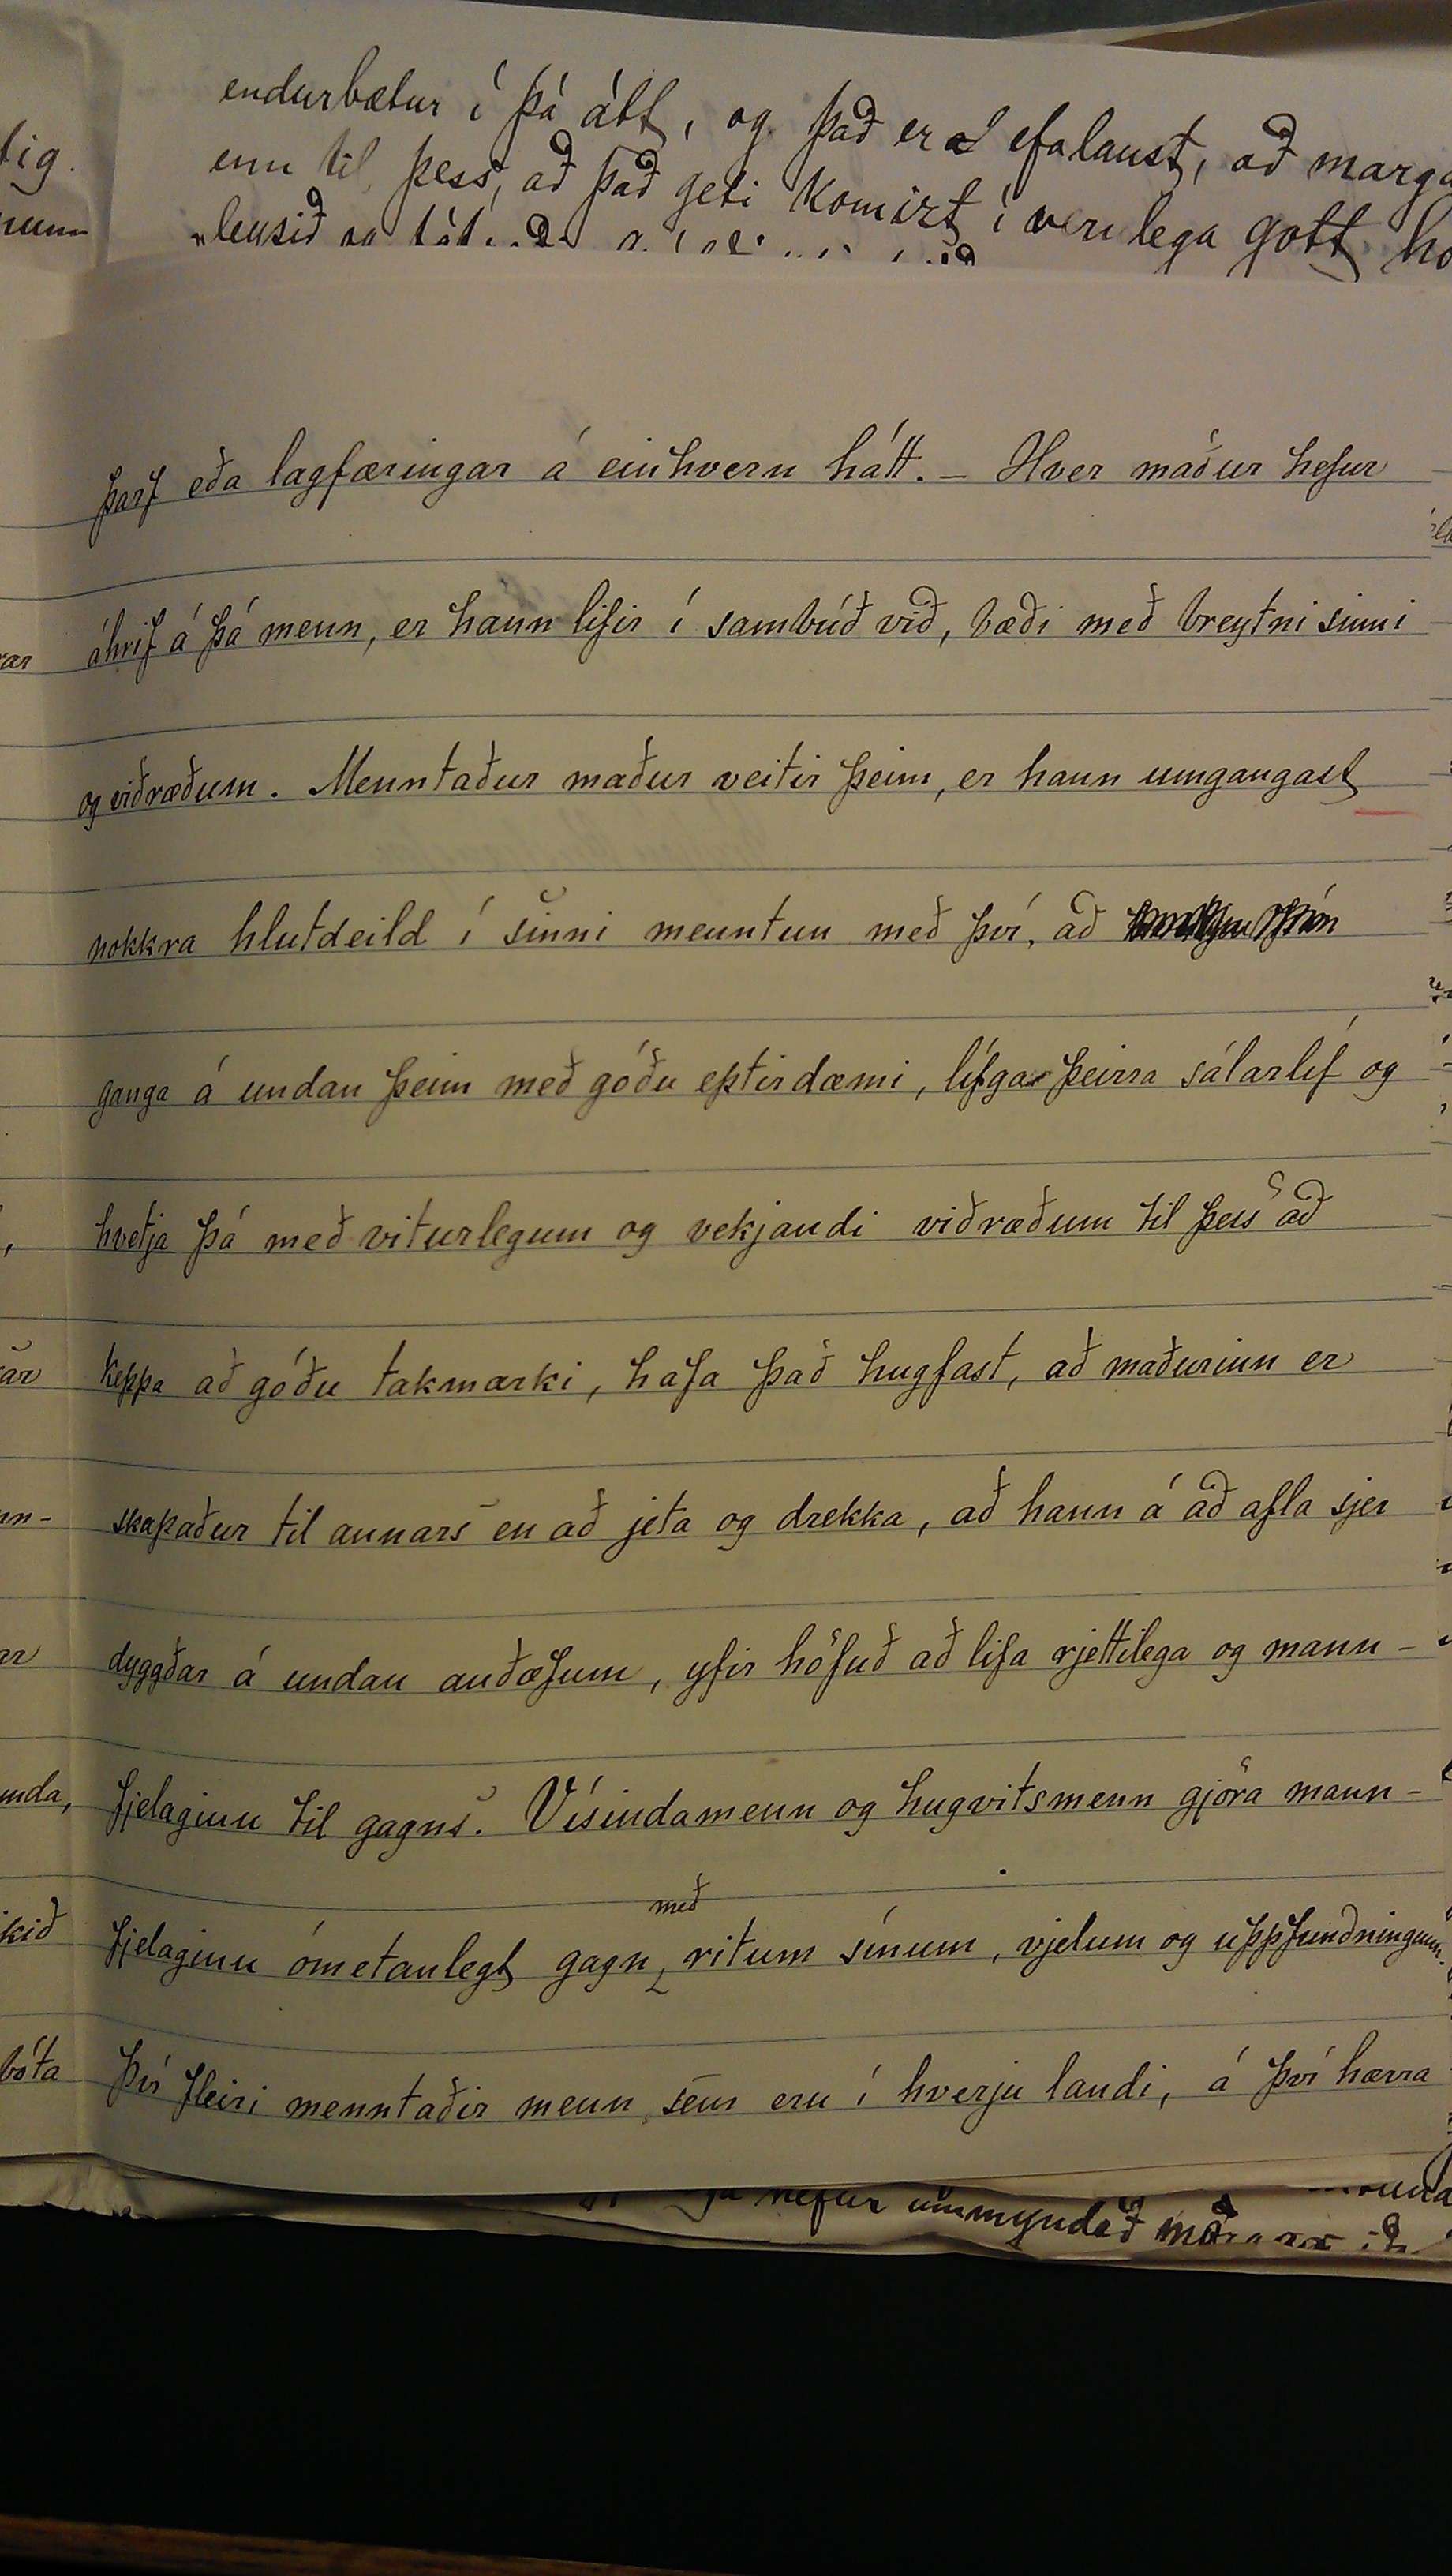 endurbætur í þá átt, og það er efalaust, að marga
enn til þess, að það geti komizt í verulega gott ho
tig.
þarf eða lagfæringar á einhvern hátt. – Hver maður hefur
áhrif á þá menn, er hann lifir í sambúð við, bæði með breytni sinni
og viðræðum. Menntaður maður veitir þeim, er hann umgangast
nokkra hlutdeild í sinni menntun með því, að
ganga á undan þeim með góðu eptirdæmi, lífga þeirra sálarlíf og
hvetja þá með viturlegum og vekjandi viðræðum til þess að
keppa að góðu takmarki, hafa það hugfast, að maðurinn er
skapaður til annars en að jeta og drekka, að hann á að afla sjer
dyggðar á undan auðæfum, yfir höfuð að lifa rjettilega og mann-
fjelaginu til gagns. Vísindamenn og hugvitsmenn gjöra mann-
fjelaginu ómetanlegt gagn með ritum sínum, vjelum og uppfundningum.
Því fleiri menntaðir menn, sem eru í hverju landi, á því hærra
hefur ummyndað